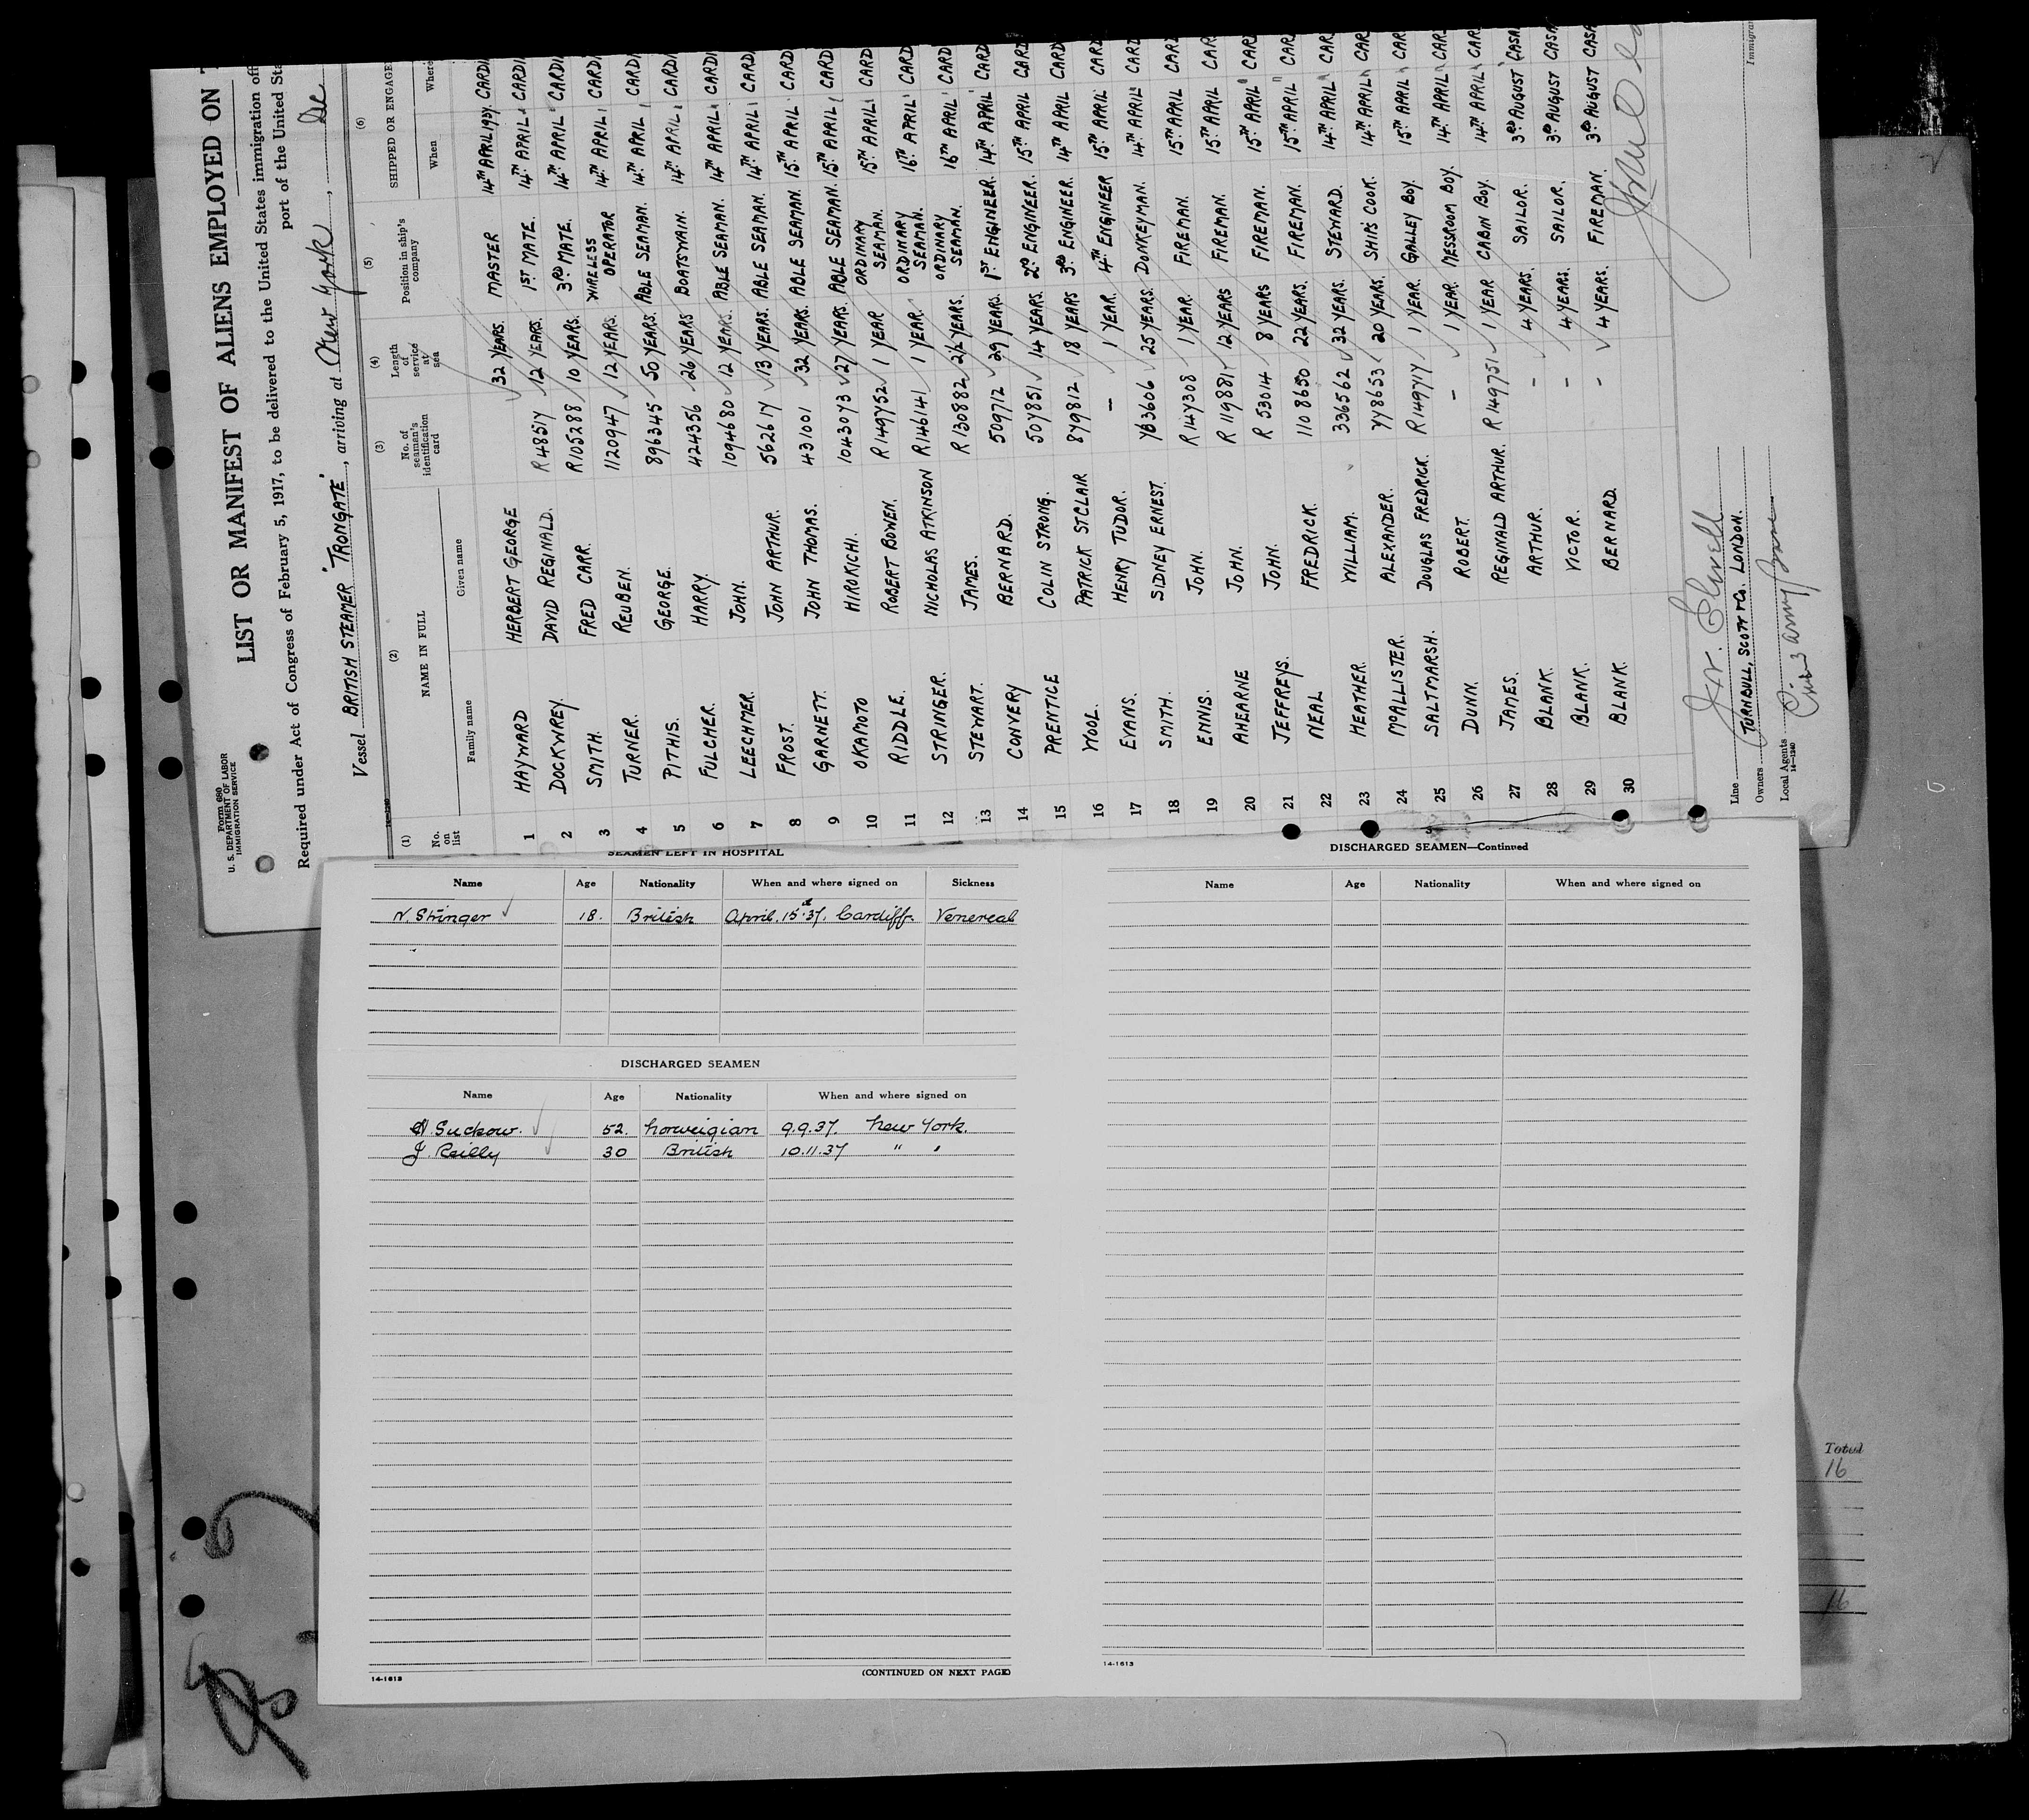 Form 680
U. S. DEPARTMENT OF LABOR
IMMIGRATION SERVICE
LIST OR MANIFEST OF ALIENS EMPLOYED ON
Required under Act of Congress of February 5, 1917, to be delivered to the United States immigration
port of the United
Vessel BRITISH STEAMER "TRONGATE", arriving at New York, De
(1) (2) (3) (4) (5) (6)
No. on list NAME IN FULL No. of seaman's identification card Length of service at sea Position in ship's company SHIPPED OR ENGAGE
Family name Given name When Where
1 HAYWARD HERBERT GEORGE 32 YEARS. MASTER 14TH APRIL 1937. CARDI
2 DOCKWREY. DAVID REGINALD. R 48517 12 YEARS. 1ST MATE. 14TH APRIL CARDI
3 SMITH. FRED CARR. R105288 10 YEARS. 3RD MATE. 14TH APRIL CARDI
4 TURNER. REUBEN. 1120947 12 YEARS. WIRELESS OPERATOR 14TH APRIL CARDI
5 PITHIS. GEORGE. 896345 50 YEARS. ABLE SEAMAN. 14TH APRIL CARDI
6 FULCHER. HARRY. 424356 26 YEARS BOATSWAIN. 14TH APRIL CARDI
7 LEECHMER. JOHN. 1094680 12 YEARS. ABLE SEAMAN. 14TH APRIL CARDI
8 FROST. JOHN ARTHUR. 562617 13 YEARS. ABLE SEAMAN. 14TH APRIL CARD
9 GARNETT. JOHN THOMAS. 431001 32 YEARS. ABLE SEAMAN. 15TH APRIL CARD
10 OKAMOTO HIROKICHI. 1043073 27 YEARS. ABLE SEAMAN. 15TH APRIL CARD
11 RIDDLE. ROBERT BOWEN. R149752 1 YEAR ORDINARY SEAMAN. 15TH APRIL CARD
12 STRINGER. NICHOLAS ATKINSON R146141 1 YEAR. ORDINARY SEAMAN. 16TH APRIL CARD
13 STEWART. JAMES. R130882 2½ YEARS. ORDINARY SEAMAN. 16TH APRIL CARD
14 CONVERY BERNARD. 509712 29 YEARS. 1ST ENGINEER. 14TH APRIL CARD
15 PRENTICE COLIN STRONG. 507851 14 YEARS. 2ND ENGINEER. 15TH APRIL CARD
16 WOOL. PATRICK ST CLAIR 879812 18 YEARS 3RD ENGINEER. 14TH APRIL CARD
17 EVANS. HENRY TUDOR. - 1 YEAR. 4TH ENGINEER 15TH APRIL CARD
18 SMITH. SIDNEY ERNEST. 783606 25 YEARS. DONKEYMAN. 14TH APRIL CARD
19 ENNIS. JOHN. R 147308 1 YEAR. FIREMAN. 15TH APRIL CARD
20 AHEARNE JOHN. R 119881 12 YEARS FIREMAN. 15TH APRIL CAR
21 JEFFREYS. JOHN. R 53014 8 YEARS FIREMAN. 15TH APRIL CAR
22 NEAL FREDRICK. 1108650 22 YEARS. FIREMAN. 15TH APRIL CAR
23 HEATHER. WILLIAM. 336562 32 YEARS. STEWARD. 14TH APRIL CAR
24 McALLISTER. ALEXANDER. 778653 20 YEARS. SHIPS COOK. 14TH APRIL CAR
25 SALTMARSH. DOUGLAS FREDRICK. R149717 1 YEAR. GALLEY BOY. 15TH APRIL CAR
26 DUNN. ROBERT. - 1 YEAR. MESSROOM BOY. 14TH APRIL CAR
27 JAMES. REGINALD ARTHUR. R149751 1 YEAR CABIN BOY. 14TH APRIL CAR
28 BLANK. ARTHUR. - 4 YEARS. SAILOR. 3RD AUGUST CASA
29 BLANK. VICTOR. - 4 YEARS. SAILOR. 3RD AUGUST CASA
30 BLANK. BERNARD. - 4 YEARS. FIREMAN. 3RD AUGUST CASA
Line
Owners TURNBULL, SCOTT & Co. LONDON.
Local Agents
14-1240
Immigra
SEAMEN LEFT IN HOSPITAL
Name Age Nationality When and where signed on Sickness
N. Stringer 18. British April. 15th 37. Cardiff. Venereal
DISCHARGED SEAMEN
Name Age Nationality When and where signed on
H. Suckow. 52. Norweigian 9.9.37. New York.
J. Reilly 30 British 10.11.37 " "
14-1613
(CONTINUED ON NEXT PAGE)
DISCHARGED SEAMEN—Continued
Name Age Nationality When and where signed on
14-1613
Total
16
16